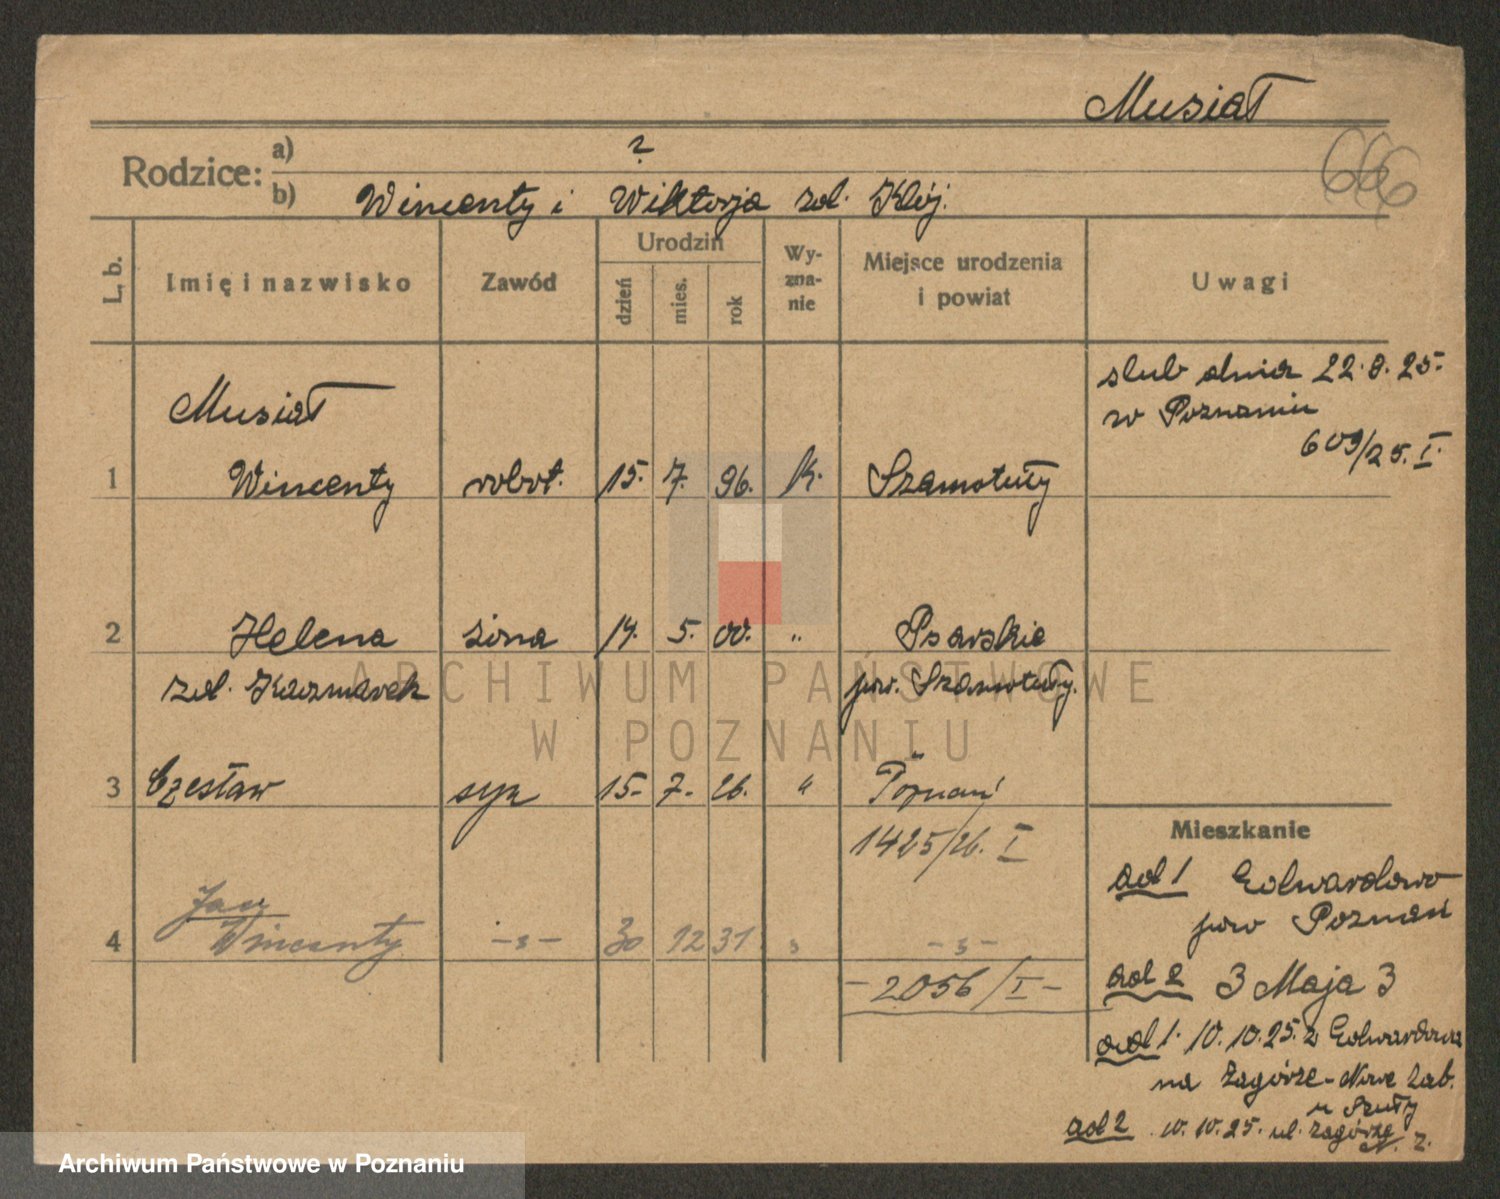 Musiał
666
Rodzice: a) ?
b) Wincenty i Wiktorja zd. Klój.
L. b. Imię i nazwisko Zawód Urodzin dzień mies. rok Wy-zna-nie Miejsce urodzenia i powiat Uwagi
slub dnia 22.8.25.
w Poznaniu
609/25. I.
Musiał
1 Wincenty robot. 15. 7. 96. k. Szamotuły
2 Helena żona 14. 5. 00. " Psarskie
zd. Kaczmarek pow. Szamotuły.
3 Czesław syn 15. 7. 26. " Poznań
1425/26. I
Mieszkanie
ad 1 Edwardowo
pow Poznań
4 Jan
Wincenty -s- 30 12 31 s -s-
-2056/I-
ad 2 3 Maja 3
ad 1. 10.10.25. z Edwardowa
na Zagórze-Nowe Zab.
u Szuły
ad 2 10.10.25. ul. Zagórze
N. Z.
ARCHIWUM PAŃSTWOWE
W POZNANIU
Archiwum Państwowe w Poznaniu